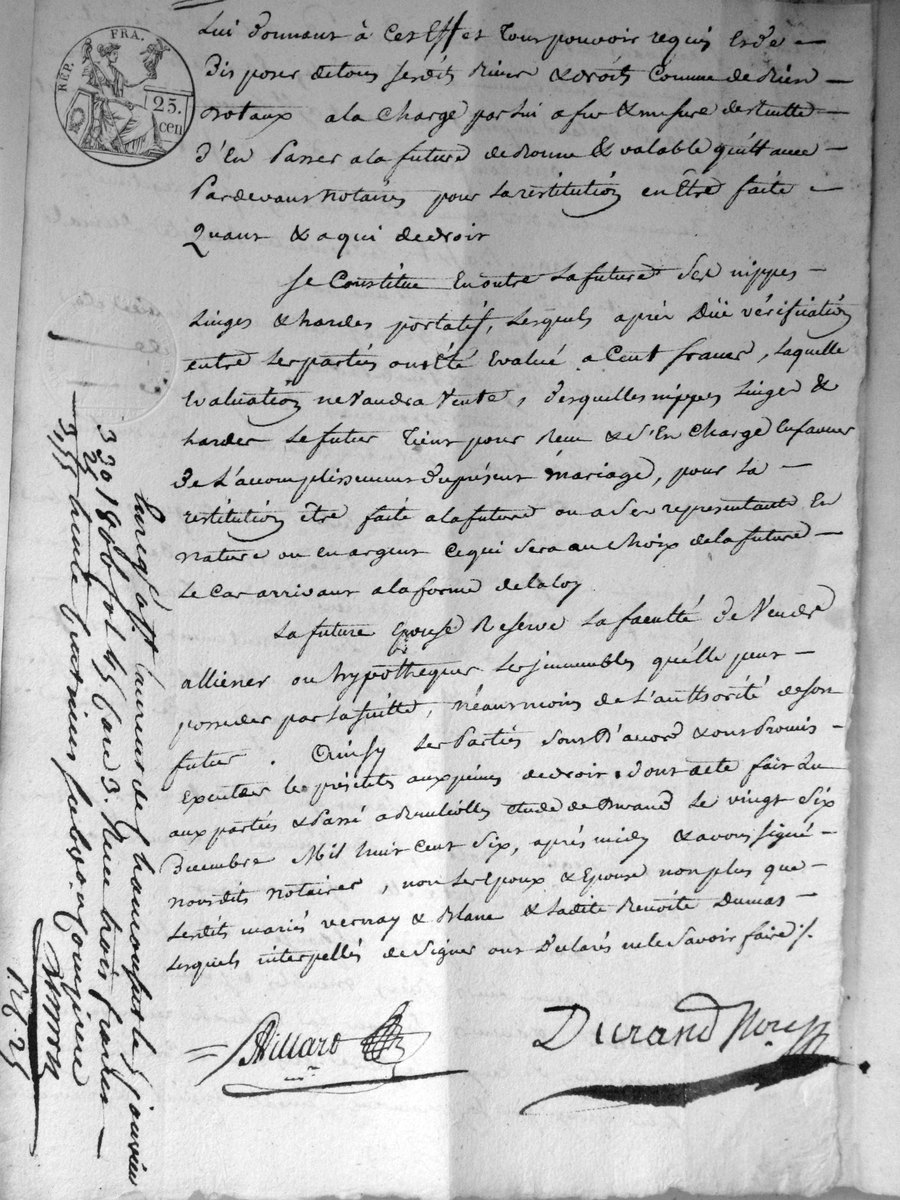 REP. FRA.
25. cen
Lui donnant à Cet Effet Tous pouvoir requis Et de
Disposer de tous sesdits Biens & droits Comme de Biens
dotaux a la Charge par Lui a fur & mesure de
D'En Passer a la future de Bonne & valable quittance
Pardevant Notaires pour La restitution en Être faite
Quant & a qui de droit
Se Constitue En outre La future Ses nippes
Linges & hardes portatif, Lesquels après Düe vérification
entre Les parties ont Eté Evalué a Cent francs, Laquelle
Evaluation ne Vaudra Vente, Desquelles nippes Linges &
hardes Le futur Tient pour & S'En Charge En faveur
De L'accomplissement Du présent mariage, pour La
restitution être faite a la future ou a Ses representants En
nature ou en argent Ce qui Sera au Choix de la future
Le Cas arrivant a la forme de la loy
La future Epouse Reserve La faculté De Vendre
alliener ou hypothequer Les jmmeubles qu'élle peut
posseder par La suitte, Néanmoins de L'authorité de son
futur. Ainsy Les Parties Sont D'accord & ont Promis
Executer les présentes aux peines de droit. Dont acte fait Lu
aux parties & Passé a Etude de Durand Le vingt Six
Decembre Mil huit Cent Six, après midy & avons Signé
Nousdits Notaires, non Les Epoux & Epouse non plus que
Lesdits mariés Vernay & Blanc & Ladite Benoite Dumas
Lesquels interpellés de Signer ont Déclarés ne le Savoir faire ./.
Villard
Durand Nore
Enreg. à St Laurent de Chamousset le 5 janvier
Reçu trois francs